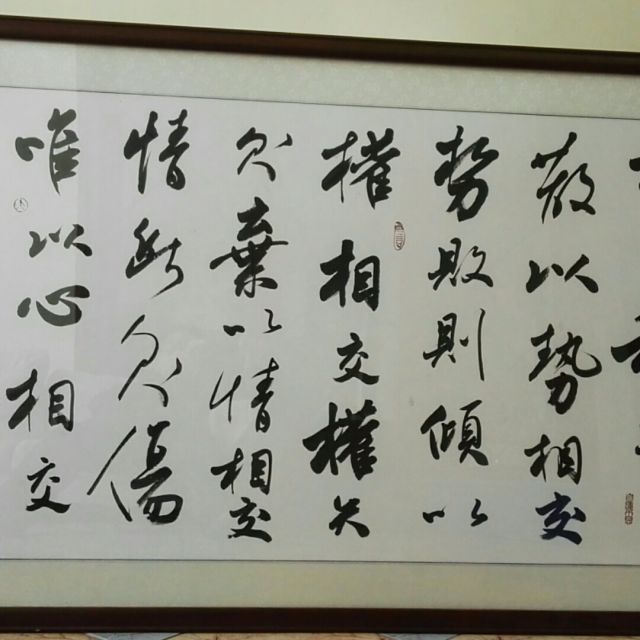 散以勢相交
勢敗則傾以
權相交權失
則棄以情相交
情斷則傷
唯以心相交